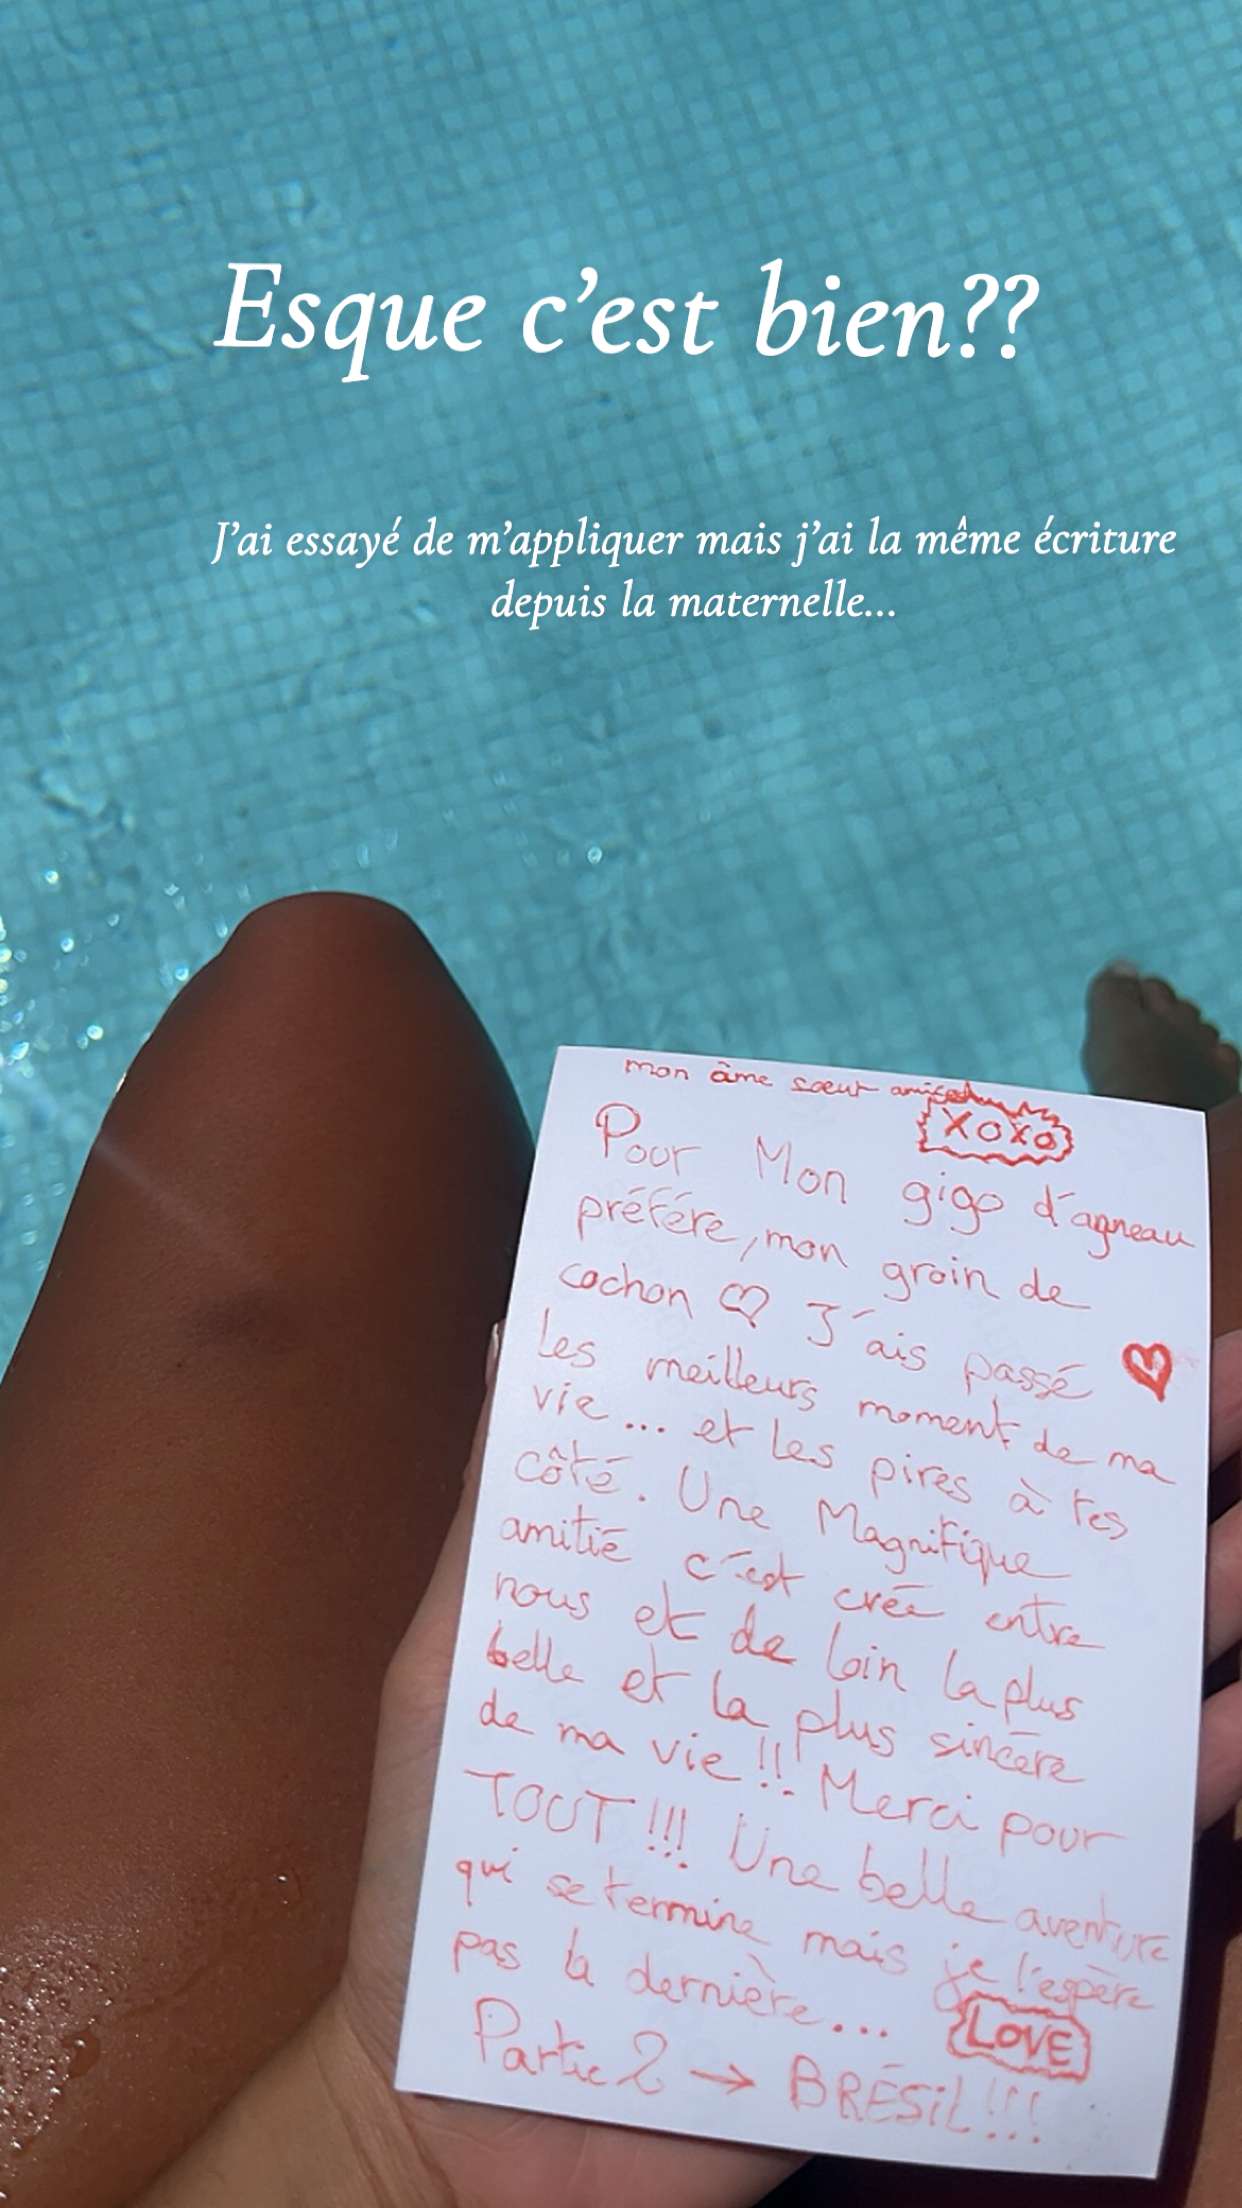 Esque c'est bien??
J'ai essayé de m'appliquer mais j'ai la même écriture
depuis la maternelle...
mon âme sœur
XOXO
Pour Mon gigo d'agneau
préférė, mon groin de
cochon ♡ J'ais passé ♥
les meilleurs moment de ma
vie... et les pires à tes
côté. Une Magnifique
amitié c'est créé entre
nous et de loin la plus
belle et la plus sincère
de ma vie!! Merci pour
TOUT!!! Une belle aventure
qui se termine mais je l'espère
pas la dernière...
LOVE
Partie 2 → BRÉSiL!!!